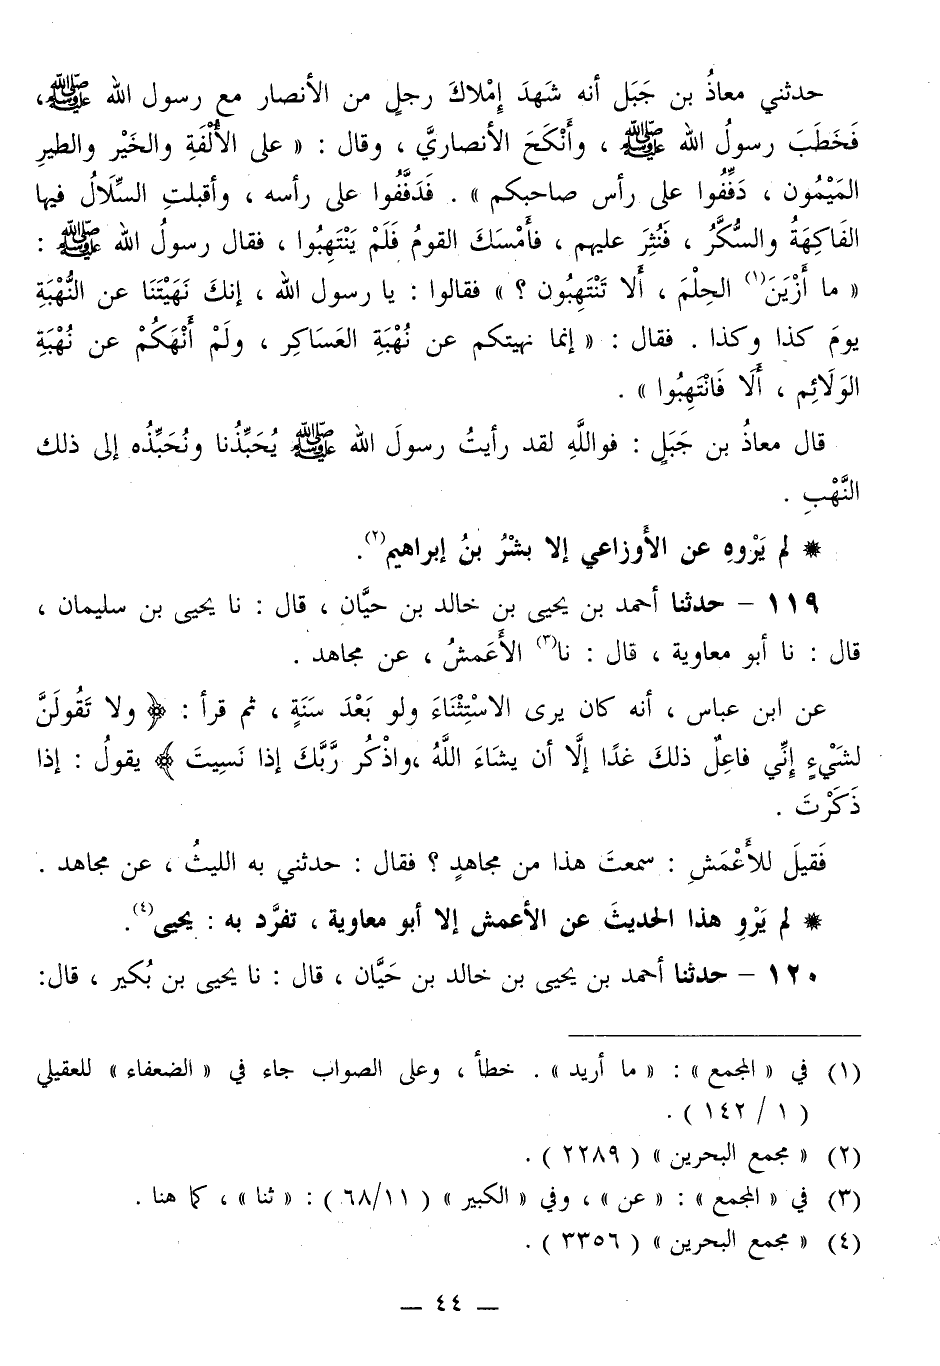 حدثني معاذُ بن جَبَل أنه شَهدَ إِمْلاكَ رجلٍ من الأنصار مع رسول الله ﷺ،
فَخَطَبَ رسولُ الله ﷺ ، وأَنْكَحَ الأنصاريَّ ، وقال : « على الأُلْفَةِ والخَيْر والطيرِ
المَيْمُون ، دَفِّفُوا على رأس صاحبكم » . فَدَفَّفُوا على رأسه ، وأقبلتِ السِّلَالُ فيها
الفَاكِهَةُ والسُّكَّرُ ، فَنُثِرَ عليهم ، فأَمْسَكَ القومُ فَلَمْ يَنْتَهِبُوا ، فقال رسولُ الله ﷺ :
« ما أَزْيَنَ(١) الحِلْمَ ، أَلا تَنْتَهِبُون ؟ » فقالوا : يا رسول الله ، إنكَ نَهَيْتَنَا عن النُّهْبَةِ
يومَ كذا وكذا . فقال : « إنما نهيتكم عن نُهْبَةِ العَسَاكِر ، ولَمْ أَنْهَكُمْ عن نُهْبَةِ
الوَلَائِم ، أَلَا فَانْتَهِبُوا » .
قال معاذُ بن جَبَلٍ : فواللَّهِ لقد رأيتُ رسولَ الله ﷺ يُحَبِّذُنا ونُحَبِّذُه إلى ذلك
النَّهْبِ .
* لم يَرْوِهِ عن الأَوزاعي إلا بشْرُ بنُ إبراهيم(٢).
١١٩ – حدثنا أحمد بن يحيى بن خالد بن حيَّان ، قال : نا يحيى بن سليمان ،
قال : نا أبو معاوية ، قال : نا(٣) الأَعَمشُ ، عن مجاهد .
عن ابن عباس ، أنه كان يرى الاسْتِثْنَاءَ ولو بَعْدَ سَنَةٍ ، ثم قرأ : ﴿ ولا تَقُولَنَّ
لشَيْءٍ إِنِّي فاعِلٌ ذلكَ غدًا إلَّا أن يشَاءَ اللَّهُ ،واذْكُر رَّبَّكَ إذا نَسِيتَ ﴾ يقولُ : إذا
ذَكَرْتَ .
فَقيلَ للأَعْمَشِ : سمعتَ هذا من مجاهدٍ ؟ فقال : حدثني به الليثُ ، عن مجاهد .
* لم يَرْوِ هذا الحديثَ عن الأعمش إلا أبو معاوية ، تفرَّد به : يحيى(٤).
١٢٠ – حدثنا أحمد بن يحيى بن خالد بن حَيَّان ، قال : نا يحيى بن بُكير ، قال:
(١) في « المجمع » : « ما أريد » . خطأ ، وعلى الصواب جاء في « الضعفاء » للعقيلي
( ١ / ١٤٢ ) .
(٢) « مجمع البحرين » ( ٢٢٨٩ ) .
(٣) في « المجمع » : « عن » ، وفي « الكبير » ( ٦٨/١١ ) : « ثنا » ، كما هنا .
(٤) « مجمع البحرين » ( ٣٣٥٦ ) .
— ٤٤ —